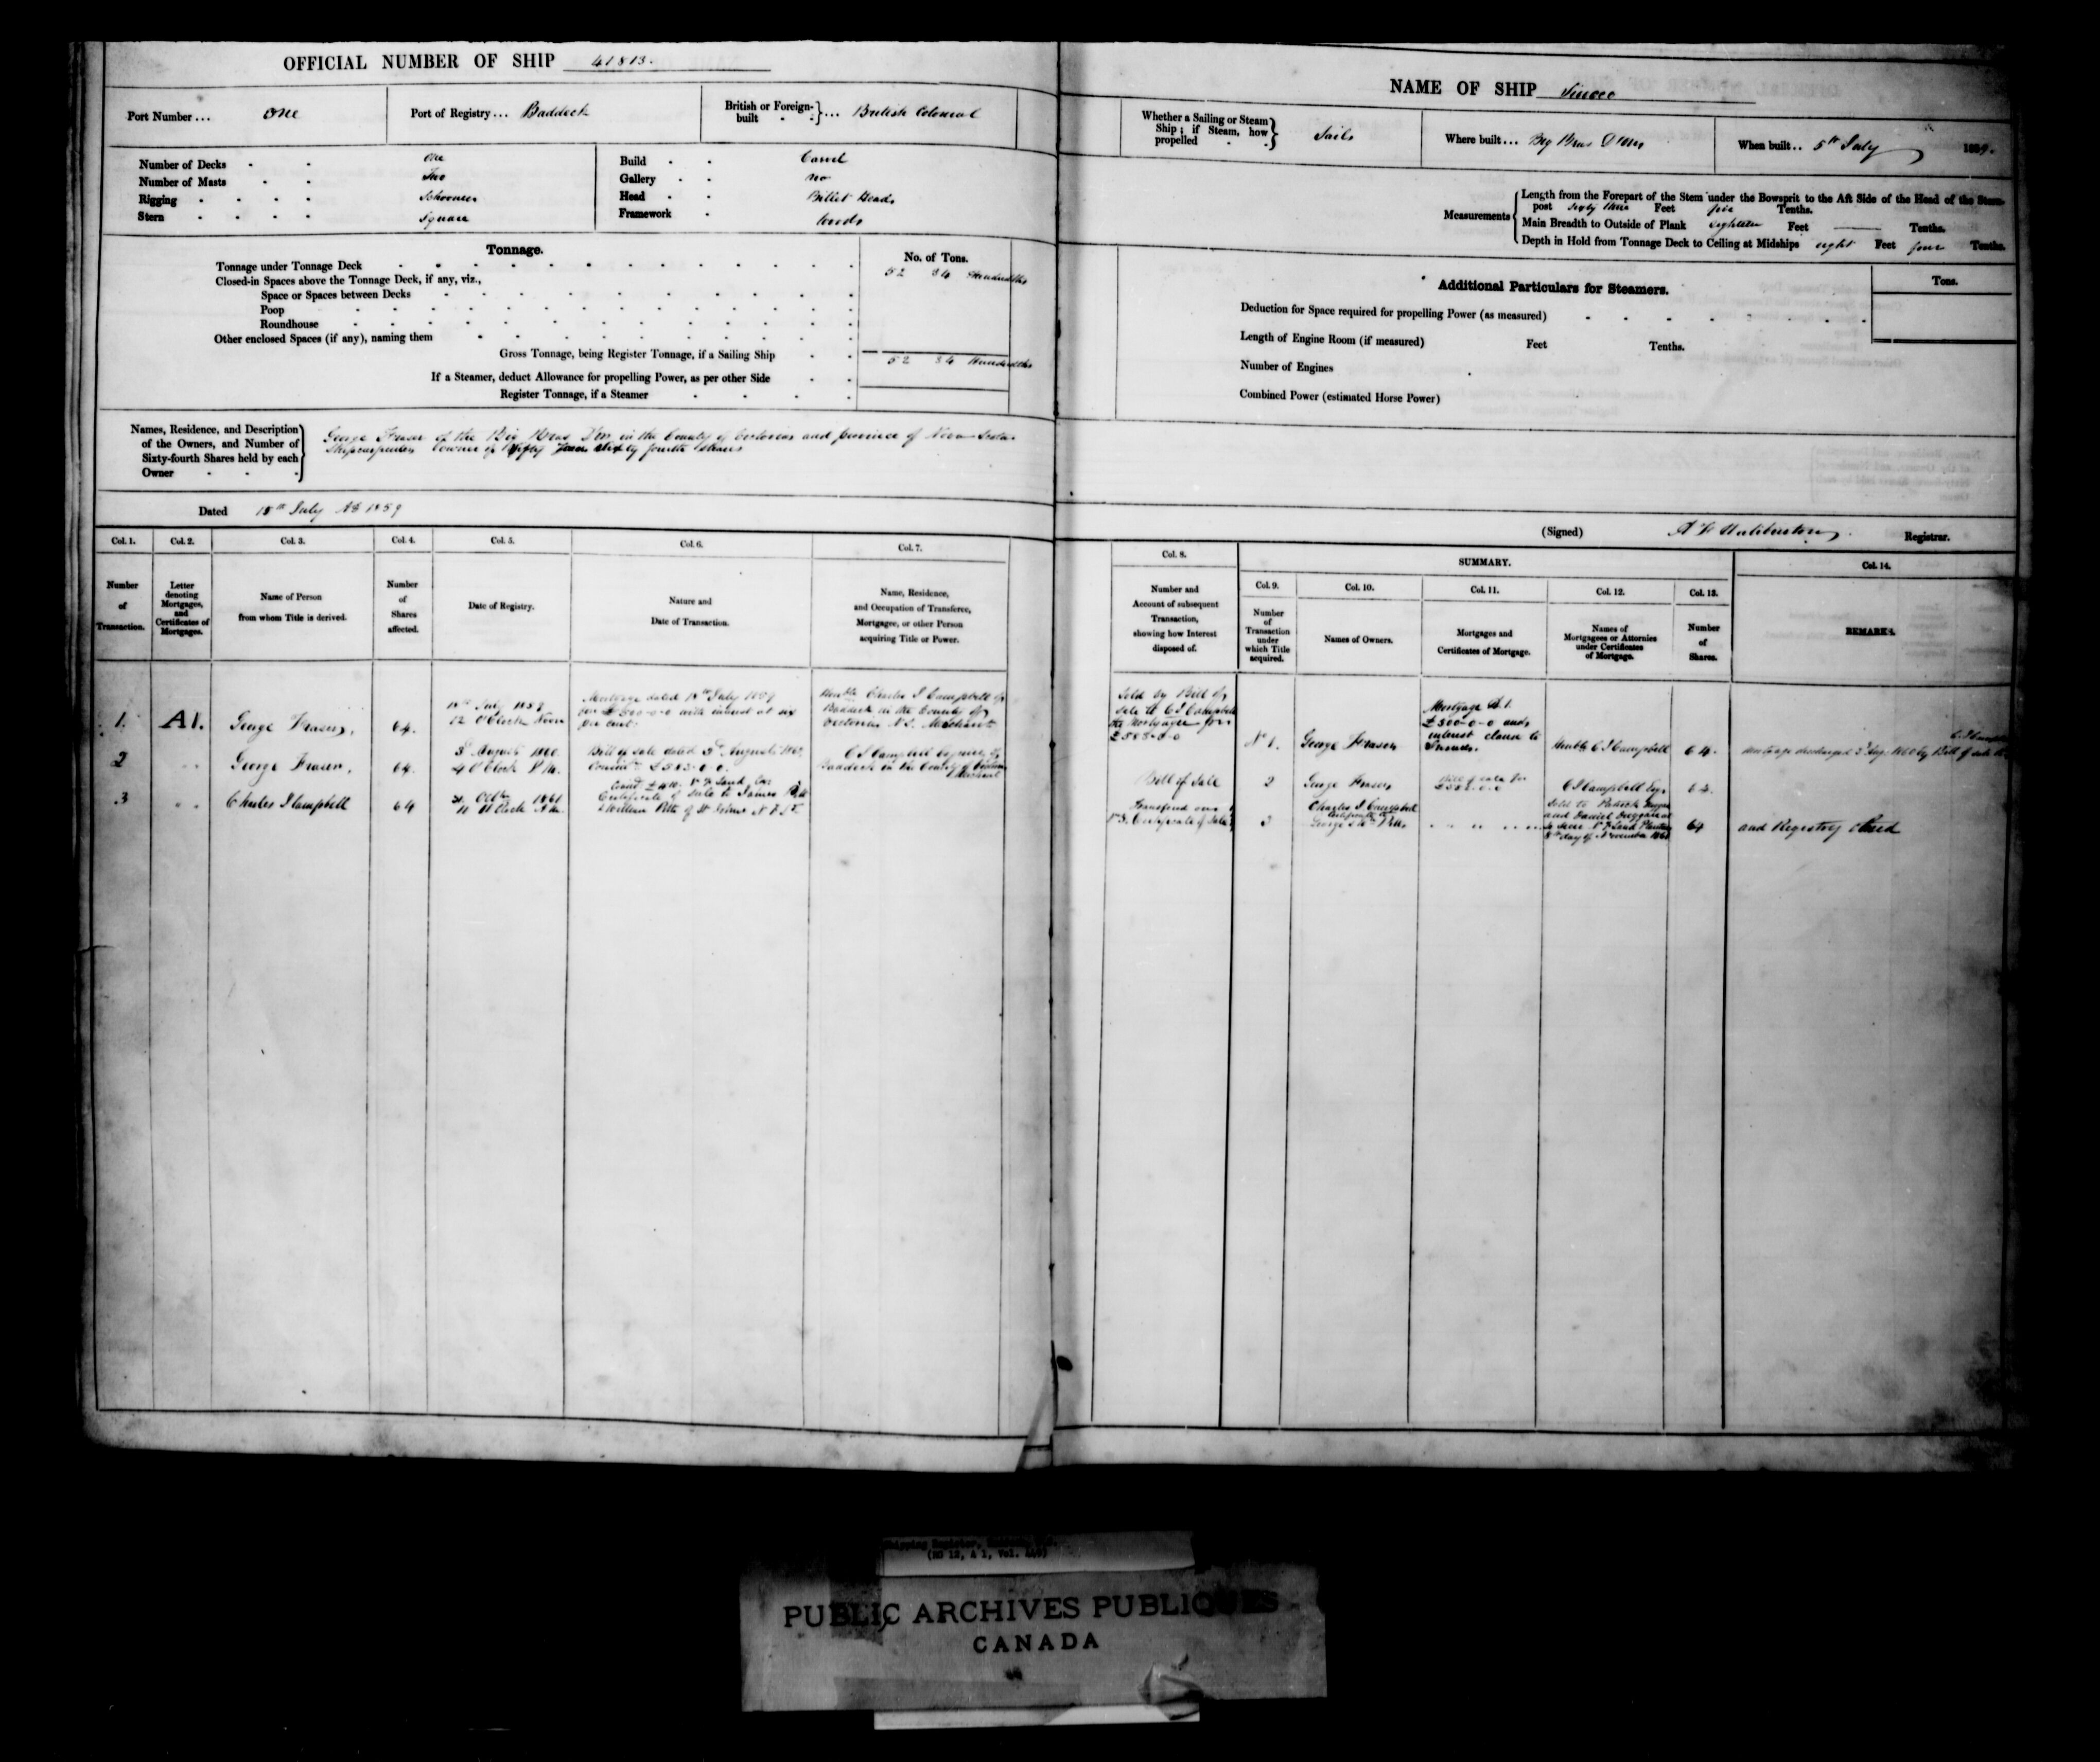 OFFICIAL NUMBER OF SHIP 41813.
Port Number ... One
Port of Registry ... Baddeck
British or Foreign-built } ... British Colonial
Number of Decks One
Number of Masts Two
Rigging Schooner
Stern Square
Build Carvel
Gallery no
Head Billet Head
Framework Wood
Tonnage.
No. of Tons.
Tonnage under Tonnage Deck 52 34 Hundredths
Closed-in Spaces above the Tonnage Deck, if any, viz.,
Space or Spaces between Decks
Poop
Roundhouse
Other enclosed Spaces (if any), naming them
Gross Tonnage, being Register Tonnage, if a Sailing Ship 52 34 Hundredths
If a Steamer, deduct Allowance for propelling Power, as per other Side
Register Tonnage, if a Steamer
Names, Residence, and Description
of the Owners, and Number of
Sixty-fourth Shares held by each
Owner
George Fraser of the Big Bras D'or in the County of Victoria and province of Nova Scotia
Shipcarpenter owner of Sixty four sixty fourth shares
Dated 18th July AD 1859
Col. 1. Number of Transaction.
Col. 2. Letter denoting Mortgages, and Certificates of Mortgages.
Col. 3. Name of Person from whom Title is derived.
Col. 4. Number of Shares affected.
Col. 5. Date of Registry.
Col. 6. Nature and Date of Transaction.
Col. 7. Name, Residence, and Occupation of Transferee, Mortgagee, or other Person acquiring Title or Power.
1. A1. George Fraser, 64.
18th July 1859
12 O'Clock Noon
Mortgage dated 18th July 1859
for £500-0-0 with interest at six
per cent.
Honble Charles J Campbell of
Baddeck in the County of
Victoria N.S. Merchant
2 " " George Fraser, 64.
3d August 1860.
4 O'Clock P.M.
Bill of Sale dated 3d August 1860
Consid £583.0.0.
C J Campbell Esquire of
Baddeck in the County of Victoria
Merchant
3 " " Charles J Campbell 64
Octr 1861
11 O'Clock A.M.
Certificate of Sale to James
& William Pitts of St Johns N F L
NAME OF SHIP
Whether a Sailing or Steam
Ship; if Steam, how
propelled } Sails
Where built ... Big Bras D'Or
When built .. 5th July 1859.
Measurements
Length from the Forepart of the Stem under the Bowsprit to the Aft Side of the Head of the Stern-
post sixty three Feet five Tenths.
Main Breadth to Outside of Plank eighteen Feet —— Tenths.
Depth in Hold from Tonnage Deck to Ceiling at Midships eight Feet four Tenths.
Additional Particulars for Steamers.
Tons.
Deduction for Space required for propelling Power (as measured)
Length of Engine Room (if measured) Feet Tenths.
Number of Engines
Combined Power (estimated Horse Power)
(Signed) Haliburton Registrar.
Col. 8. Number and Account of subsequent Transaction, showing how Interest disposed of.
SUMMARY.
Col. 9. Number of Transaction under which Title acquired.
Col. 10. Names of Owners.
Col. 11. Mortgages and Certificates of Mortgage.
Col. 12. Names of Mortgagees or Attornies under Certificates of Mortgage.
Col. 13. Number of Shares.
Col. 14. REMARKS.
Sold by Bill of
Sale to C J Campbell
the Mortgagee for
£583-0-0
No 1. George Fraser
Mortgage A.1.
£500-0-0 and
interest
Honble C J Campbell 64.
Mortgage discharged 3 Aug. 1860 by Bill of sale to
C J Campbell
Bill of Sale 2 George Fraser
Bill of sale for
£583-0-0
C J Campbell Esqr 64.
Certificate of Sale
3
Charles J Campbell
Certificate to
George & Wm Pitts
Sold to Patrick
and Daniel
8th day of November 1861
64
and Registry closed
(RG 12, A 1, Vol.
PUBLIC ARCHIVES PUBLIQUES
CANADA